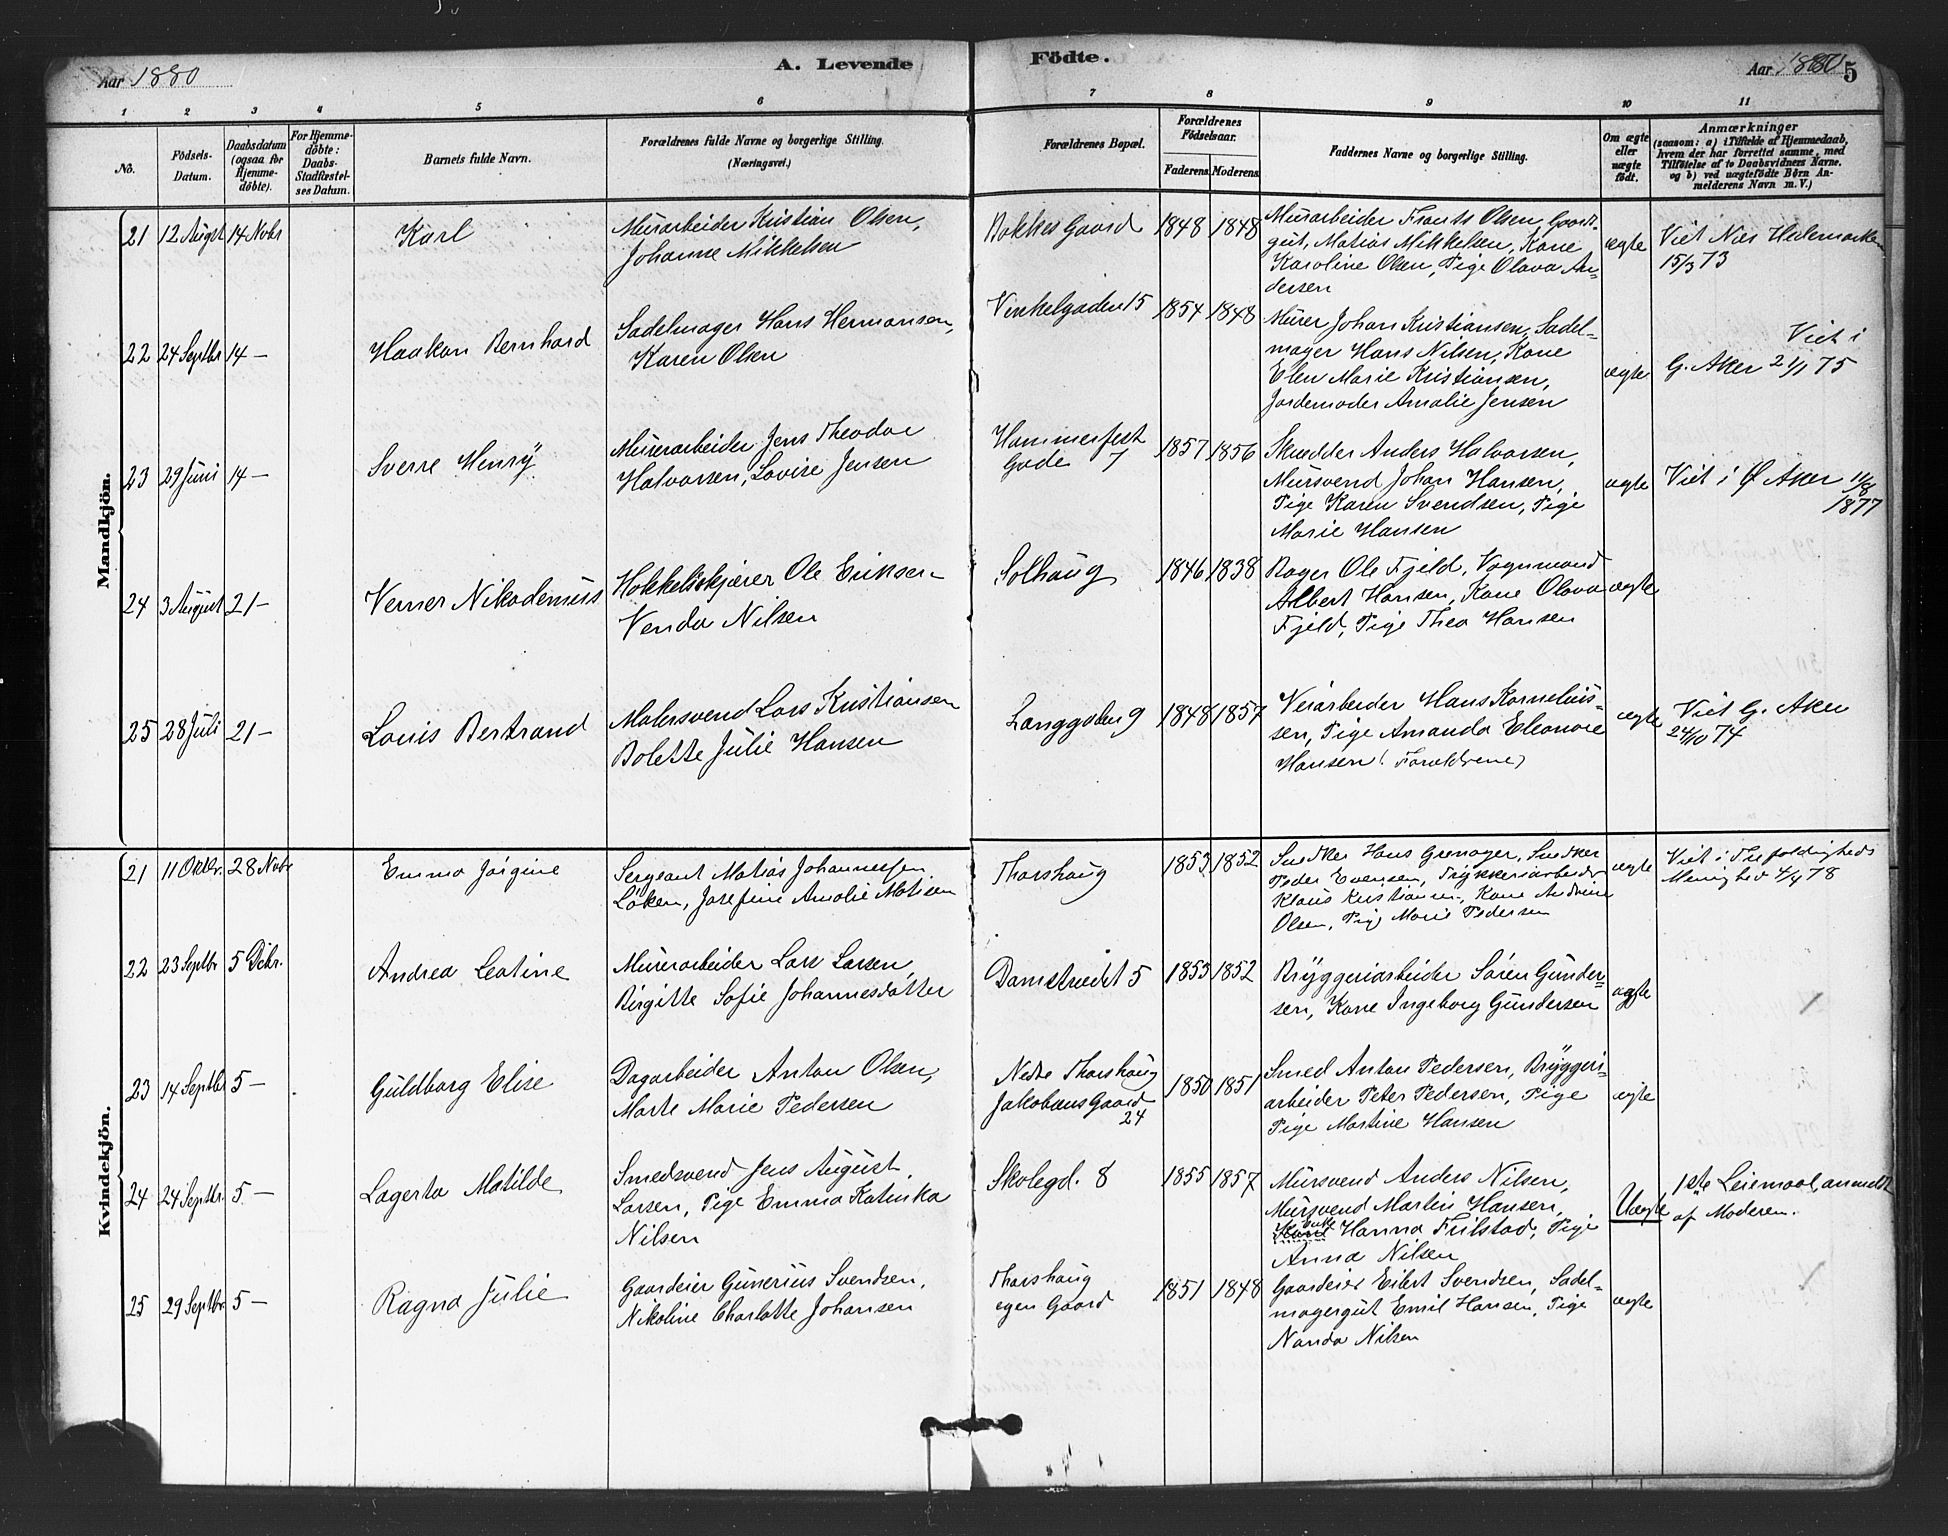 Aar 1880
A. Levende
Födte.
Aar 1880
5
1 2 3 4 5 6 7 8 9 10 11
No.
Födsels-
Datum.
Daabsdatum
(ogsaa for
Hjemme-
döbte).
For Hjemme-
döbte:
Daabs-
Stadfæstel-
ses Datum.
Barnets fulde Navn.
Forældrenes fulde Navne og borgerlige Stilling.
(Næringsvei.)
Forældrenes Bopæl.
Forældrenes
Födselsaar.
Faderens Moderens
Faddernes Navne og borgerlige Stilling.
Om ægte
eller
uægte
födt.
Anmærkninger
(saasom: a) i Tilfælde af Hjemmedaab,
hvem der har forrettet samme, med
Tilföielse af to Daabsvidners Navne.
og b) ved uægtefödte Børn An-
melderens Navn m. V.)
Mandkjön.
21 12 August 14 Nvbr
Karl
Murarbeider Kristian Olsen,
Johanne Mikkelsen
Bakkes Gaard
1848 1848
Murarbeider Frants Olsen, Gaards-
gut, Matias Mikkelsen, Kone
Karoline Olsen, Pige Olava An-
dersen
ægte
Viet Næs Hedemarken
15/3 73
22 24 Septbr 14 —
Haakon Bernhard
Sadelmager Hans Hermansen,
Karen Olsen
Vinkelgaden 15
1854 1848
Murer Johan Kristiansen, Sadel-
mager Hans Nilsen, Kone
Elen Marie Kristiansen,
Jordemoder Amalie Jensen
ægte
Viet i
G. Aker 2/1 75
23 29 Juni 14 —
Sverre Henry
Murerarbeider Jens Theodor
Halvorsen, Lovise Jensen
Hammerfest
Gade 7
1857 1856
Skrædder Anders Halvorsen,
Mursvend Johan Hansen,
Pige Karen Svendsen, Pige
Marie Hansen
ægte
Viet i Ø Aker 11/8
1877
24 3 August 21 —
Verner Nikodemus
Hokkelskjærer Ole Eriksen
Venda Nilsen
Solhaug
1846 1838
Bager Ole Fjeld, Vognmand
Albert Hansen, Kone Olava
Fjeld, Pige Thea Hansen
ægte
25 28 Juli 21 —
Louis Bertrand
Malersvend Lars Kristiansen
Bolette Julie Hansen
Langgaden 9
1848 1857
Veiarbeider Hans Kornelius-
sen, Pige Amanda Eleonore
Hansen (Forældrene)
ægte
Viet G. Aker
24/10 74
Kvindekjön.
21 11 Oktbr. 28 Nvbr
Emma Jørgine
Sergeant Matias Johannessen
Løken, Josefine Amalie Matisen
Thorshaug
1853 1852
Snedker Hans Grenager, Snedker
Peder Evensen, Trykkeriarbeider
Klaus Kristiansen, Kone Andrine
Olsen, Pige Marie Pedersen
ægte
Viet i Trefoldigheds
Menighed 4/4 78
22 23 Septbr 5 Dcbr.
Andrea Leatine
Murerarbeider Lars Larsen,
Birgitte Sofie Johannesdatter
Damstrædet 5
1855 1852
Bryggeriarbeider Søren Gunder-
sen, Kone Ingeborg Gundersen
ægte
23 14 Septbr 5 —
Guldborg Elise
Dagarbeider Anton Olsen,
Marte Marie Pedersen
Nedre Thorshaug
Jakobsens Gaard
24
1850 1851
Smed Anton Pedersen, Bryggeri-
arbeider Peter Pedersen, Pige
Pige Martine Hansen
ægte
24 24 Septbr. 5 —
Lagerta Matilde
Smedsvend Jens August
Larsen, Pige Emma Katinka
Nilsen
Skolegd. 8
1855 1857
Mursvend Anders Nilsen,
Mursvend Martin Hansen,
Enke Hanna Frilstad, Pige
Anna Nilsen
Uægte
1ste Leiermaal, anmeldt
af Moderen.
25 29 Septbr 5 —
Ragna Julie
Gaardeier Gunerius Svendsen,
Nikoline Charlotte Johansen
Thorshaug
egen Gaard
1851 1848
Gaardeier Eibert Svendsen, Sadel-
magergut Emil Hansen, Pige
Nanda Nilsen
ægte